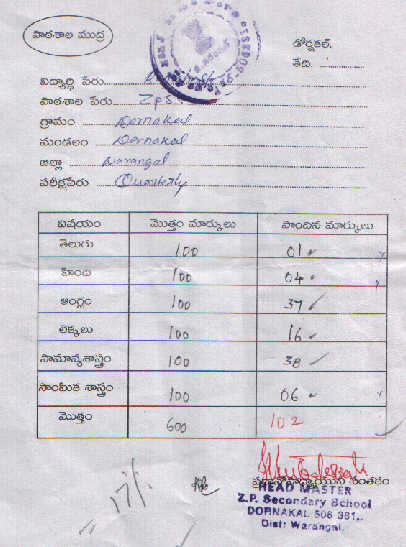 పాఠశాల ముద్ర
డోర్నకల్,
తేది.
విద్యార్థి పేరు
పాఠశాల పేరు ZPSS
గ్రామం Dornakal
మండలం Dornakal
జిల్లా Warangal
పరీక్షపేరు Quarterly
విషయం మొత్తం మార్కులు పొందిన మార్కులు
తెలుగు 100 01
హింది 100 04
ఆంగ్లం 100 37
లెక్కలు 100 16
సామాన్యశాస్త్రం 100 38
సాంఘీక శాస్త్రం 100 06
మొత్తం 600 102
= 17%
HEAD MASTER
Z.P. Secondary School
DORNAKAL 506 381,
Dist: Warangal.